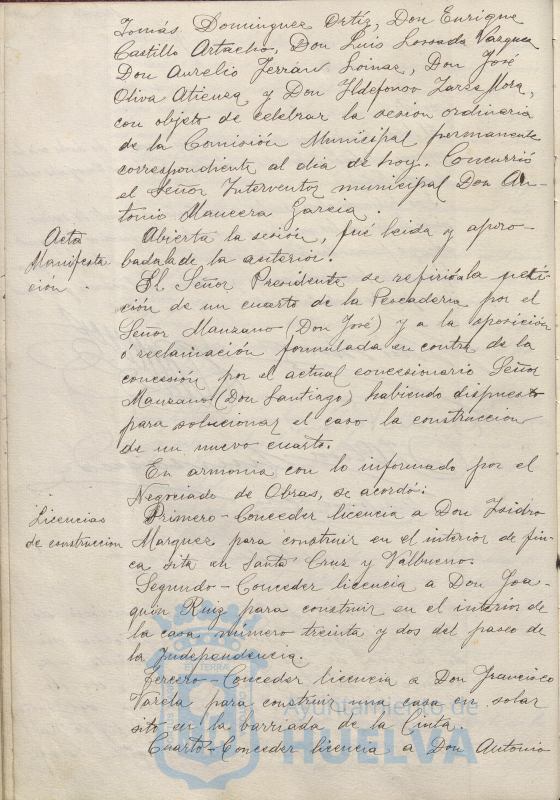 Tomás Dominguez Ortíz, Don Enrique
Castillo Artacho, Don Luis Lossada Vazquez
Don Aurelio Ferrán Loinaz, Don José
Oliva Atienza y Don Ildefonso Mora,
con objeto de celebrar la sesion ordinaria
de la Comisión Municipal permanente
correspondiente al dia de hoy. Concurrió
el Señor Interventor municipal Don An-
tonio Maucera Garcia.
Acta
Abierta la sesión, fué leida y apro-
badalade la anterior.
Manifesta
ción.
El Señor Presidente se refirióala peti-
ción de un cuarto de la Pescaderia por el
Señor Manzano (Don José) y a la oposición
ó reclamación formulada en contra de la
concesión por el actual concesionario Señor
Manzano (Don Santiago) habiendo dispuesto
para solucionar el caso la construccion
de un nuevo cuarto.
En armonia con lo informado por el
Negociado de Obras, se acordó:
Licencias
de construccion
Primero-Conceder licencia a Don Isidro
Marquez para construir en el interior de fin-
ca sita en Santa Cruz y Valbueno.
Segundo-Conceder licencia a Don Joa-
quin Ruiz para construir en el interior de
la casa número treinta y dos del paseo de
la Independencia.
Tercero-Conceder licencia a Don Francisco
Varela para construir una casa en solar
sito en la barriada de la Cinta.
Cuarto-Conceder licencia a Don Antonio
Ayuntamiento de
HUELVA